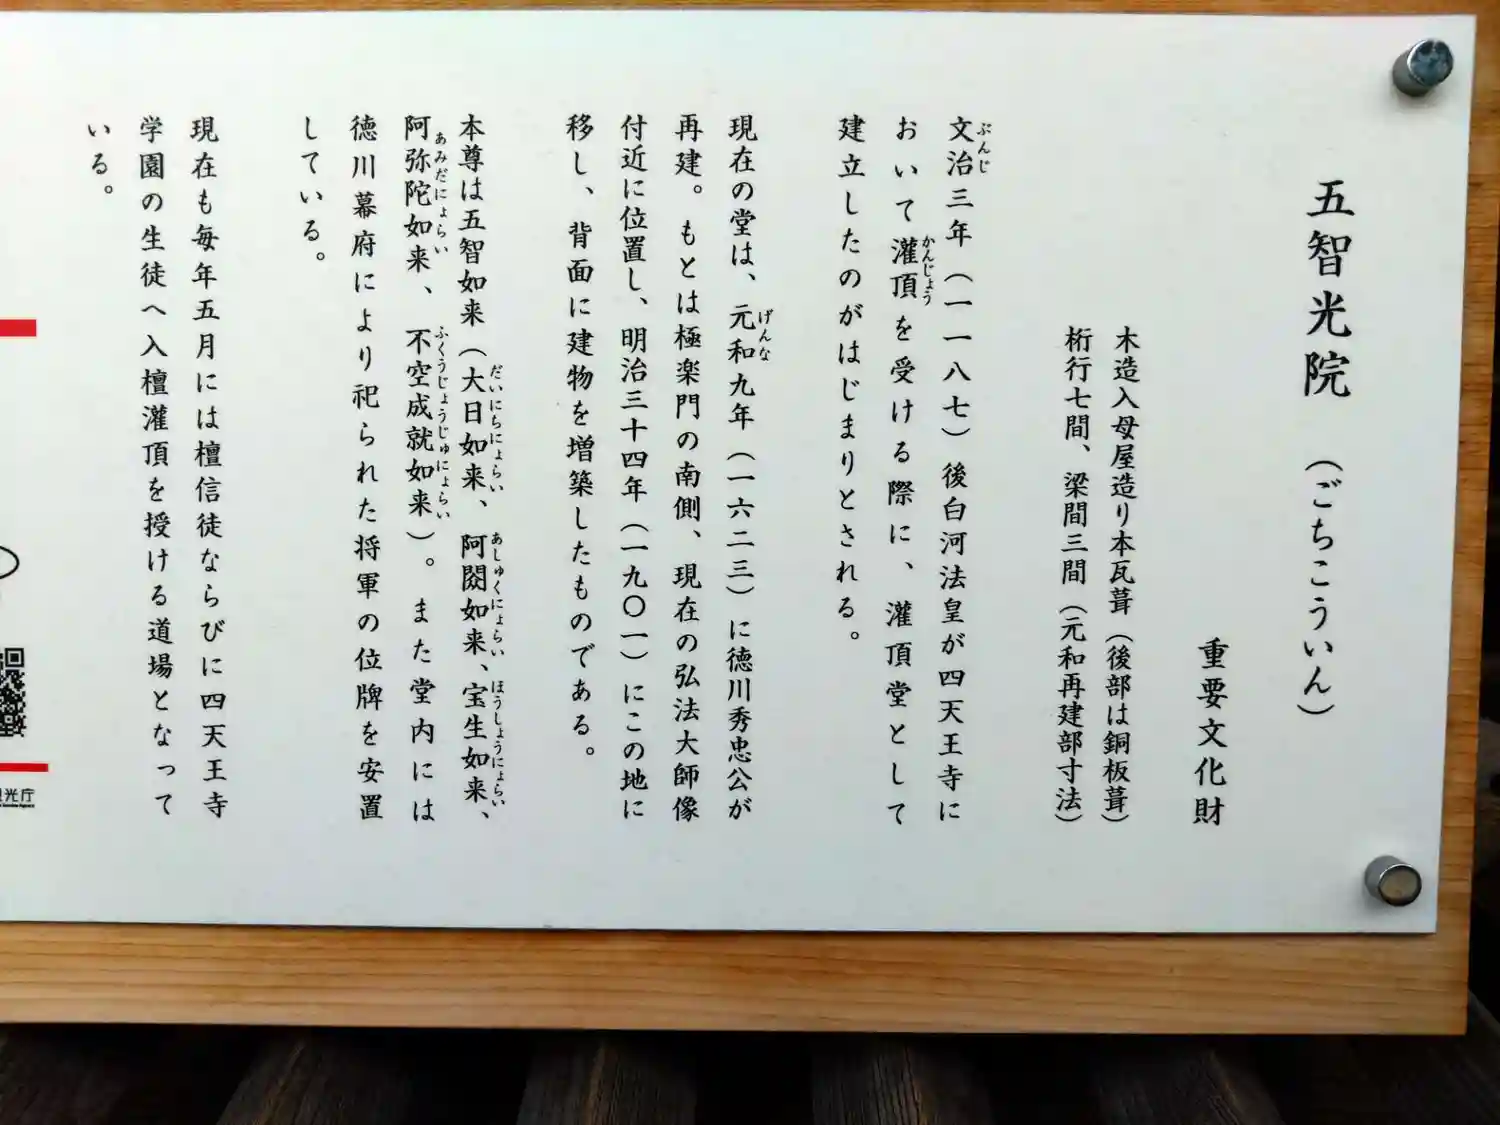 五智光院 （ごちこういん）
重要文化財
木造入母屋造り本瓦葺（後部は銅板葺）
桁行七間、梁間三間（元和再建部寸法）
文治三年（一一八七）後白河法皇が四天王寺に
おいて灌頂を受ける際に、灌頂堂として
建立したのがはじまりとされる。
現在の堂は、元和九年（一六二三）に徳川秀忠公が
再建。もとは極楽門の南側、現在の弘法大師像
付近に位置し、明治三十四年（一九〇一）にこの地に
移し、背面に建物を増築したものである。
本尊は五智如来（大日如来、阿閦如来、宝生如来、
阿弥陀如来、不空成就如来）。また堂内には
徳川幕府により祀られた将軍の位牌を安置
している。
現在も毎年五月には檀信徒ならびに四天王寺
学園の生徒へ入壇灌頂を授ける道場となって
いる。
光庁